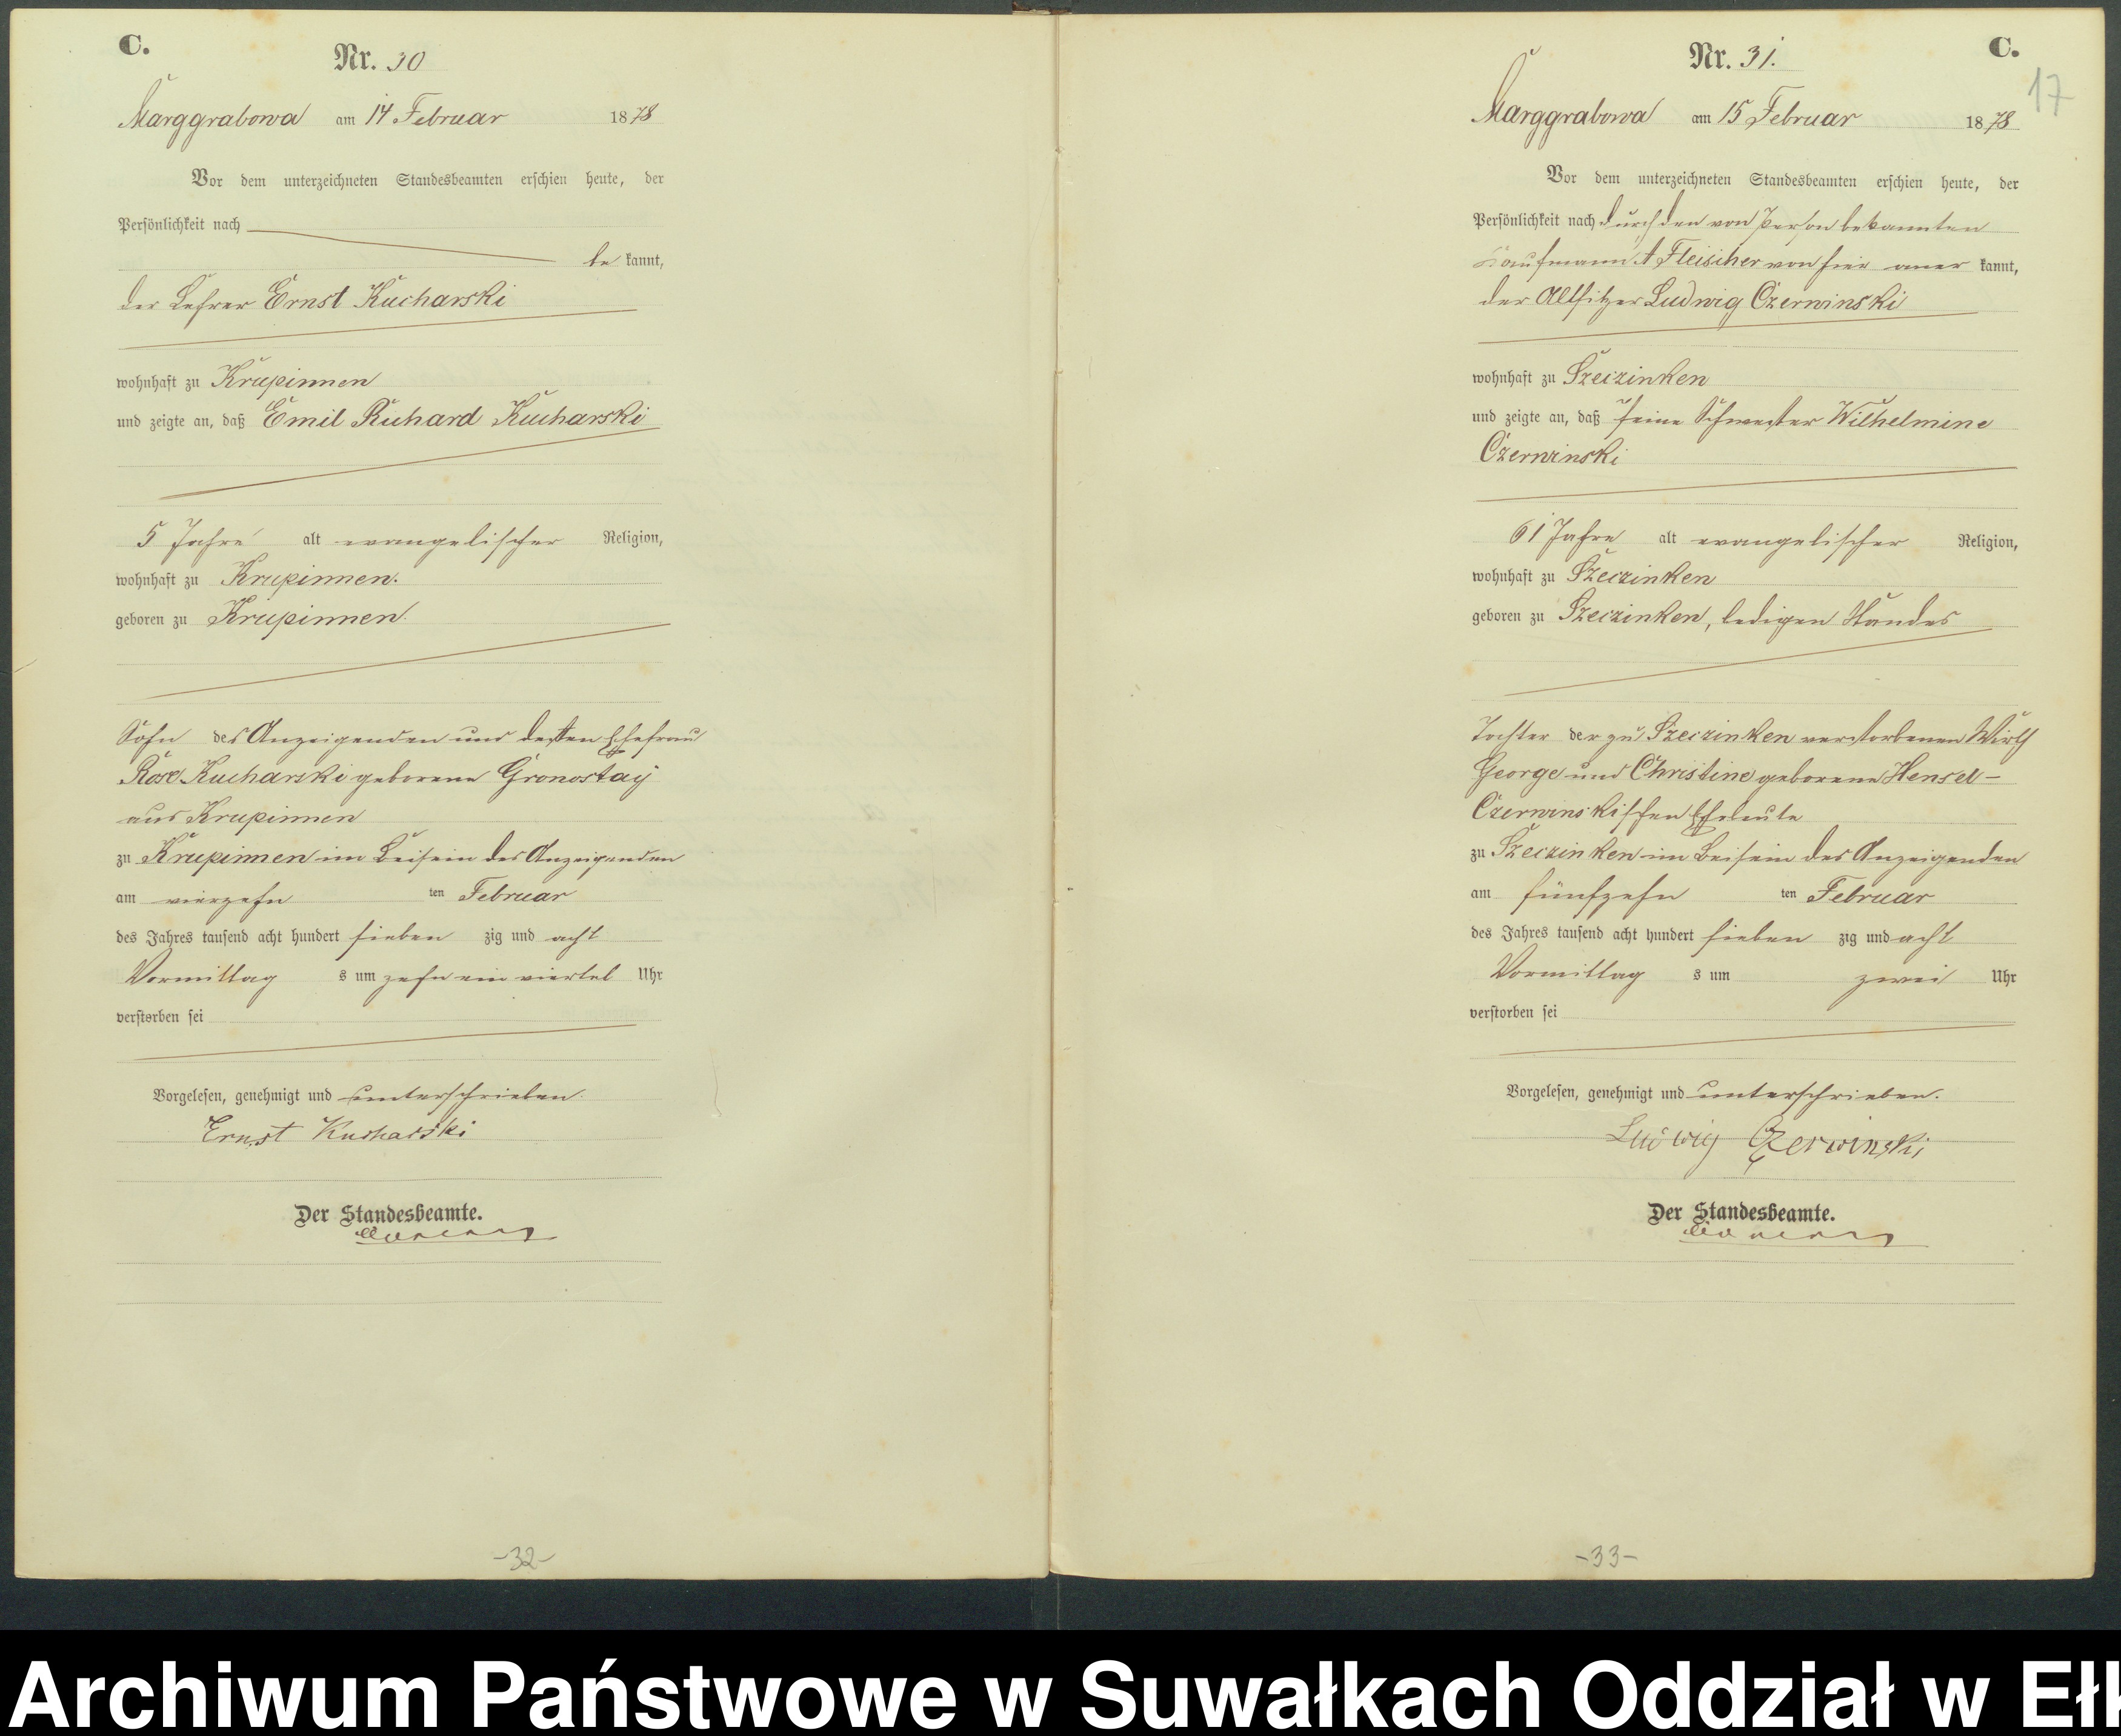 C.
Nr. 30
Marggrabowa am 14 Februar 1878
Vor dem unterzeichneten Standesbeamten erschien heute, der
Persönlichkeit nach
be kannt,
der Lehrer Ernst Kucharski
wohnhaft zu Krupinnen
und zeigte an, daß Emil Richard Kucharski
5 Jahre alt evangelischer Religion,
wohnhaft zu Krupinnen.
geboren zu Krupinnen.
Sohn des Anzeigenden und dessen Ehefrau
Rose Kucharski geborene Gronostay
aus Krupinnen
zu Krupinnen im Beisein des Anzeigenden
am vierzehn ten Februar
des Jahres tausend acht hundert sieben zig und acht
Vormittag s um zehn ein viertel Uhr
verstorben sei
Vorgelesen, genehmigt und unterschrieben.
Ernst Kucharski
Der Standesbeamte.
-32-
C.
17
Nr. 31.
Marggrabowa am 15 Februar 1878
Vor dem unterzeichneten Standesbeamten erschien heute, der
Persönlichkeit nach durch den von Person bekannten
Kaufmann A Fleischer von hier aner kannt,
der Altsitzer Ludwig Czerwinski
wohnhaft zu Szeczinken
und zeigte an, daß seine Schwester Wilhelmine
Czerwinski
61 Jahre alt evangelischer Religion,
wohnhaft zu Szeczinken
geboren zu Szeczinken, ledigen Standes
Tochter der zu Szeczinken verstorbenen Wirth
George und Christine geborene Hensel-
Czerwinskischen Eheleute
zu Szeczinken im Beisein des Anzeigenden
am fünfzehn ten Februar
des Jahres tausend acht hundert sieben zig und acht
Vormittag s um zwei Uhr
verstorben sei
Vorgelesen, genehmigt und unterschrieben.
Ludwig Czerwinski
Der Standesbeamte.
-33-
Archiwum Państwowe w Suwałkach Oddział w Ełk